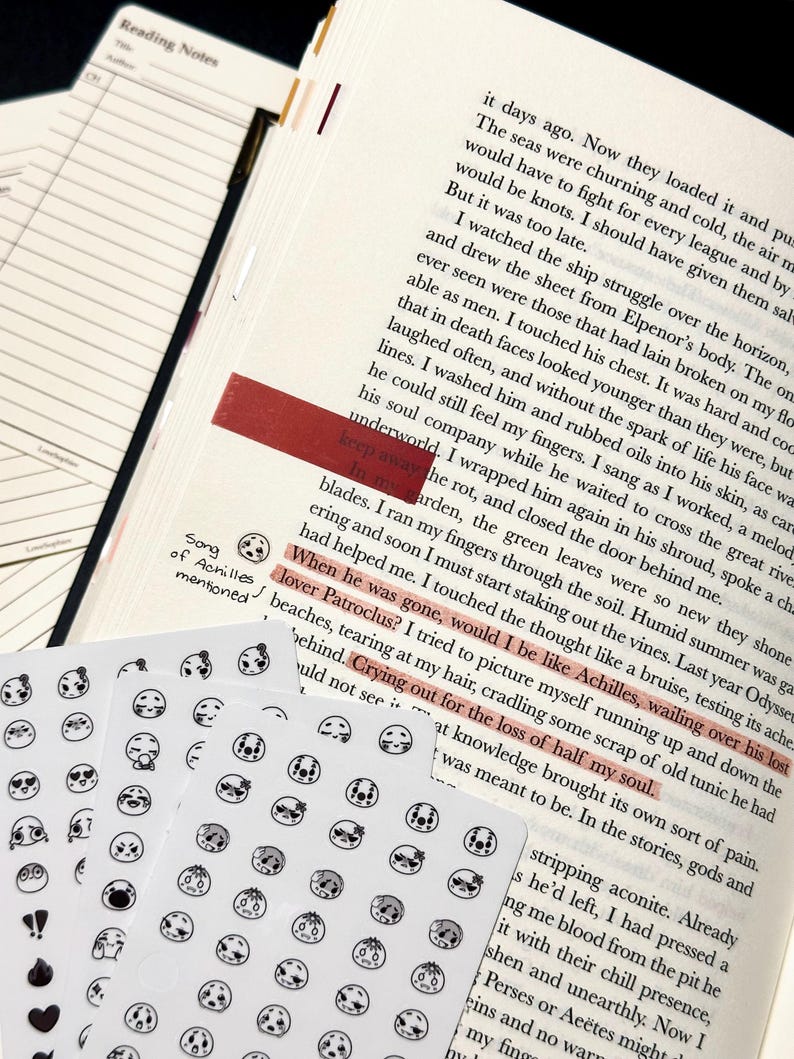 Reading Notes
Title
Author
CH
LoveSophiev
LoveSophiev
it days ago. Now they loaded it and
The seas were churning and cold, the air
would have to fight for every league and by
would be knots. I should have given them
But it was too late.
I watched the ship struggle over the horizon,
and drew the sheet from Elpenor's body. The
ever seen were those that had lain broken on my
able as men. I touched his chest. It was hard and
that in death faces looked younger than they were, but
laughed often, and without the spark of life his face
lines. I washed him and rubbed oils into his skin, as
he could still feel my fingers. I sang as I worked, a
his soul company while he waited to cross the great
underworld. I wrapped him again in his shroud, spoke a
keep away the rot, and closed the door behind me.
In my garden, the green leaves were so new they shone
blades. I ran my fingers through the soil. Humid summer was
ering and soon I must start staking out the vines. Last year
had helped me. I touched the thought like a bruise, testing its ache.
Song
of Achilles
mentioned
When he was gone, would I be like Achilles, wailing over his lost
lover Patroclus? I tried to picture myself running up and down the
beaches, tearing at my hair, cradling some scrap of old tunic he had
behind. Crying out for the loss of half my soul.
not see it. That knowledge brought its own sort of pain.
was meant to be. In the stories, gods and
stripping aconite. Already
he'd left, I had pressed a
me blood from the pit he
it with their chill presence,
and unearthly. Now I
Perses or Aeëtes might
and no
my